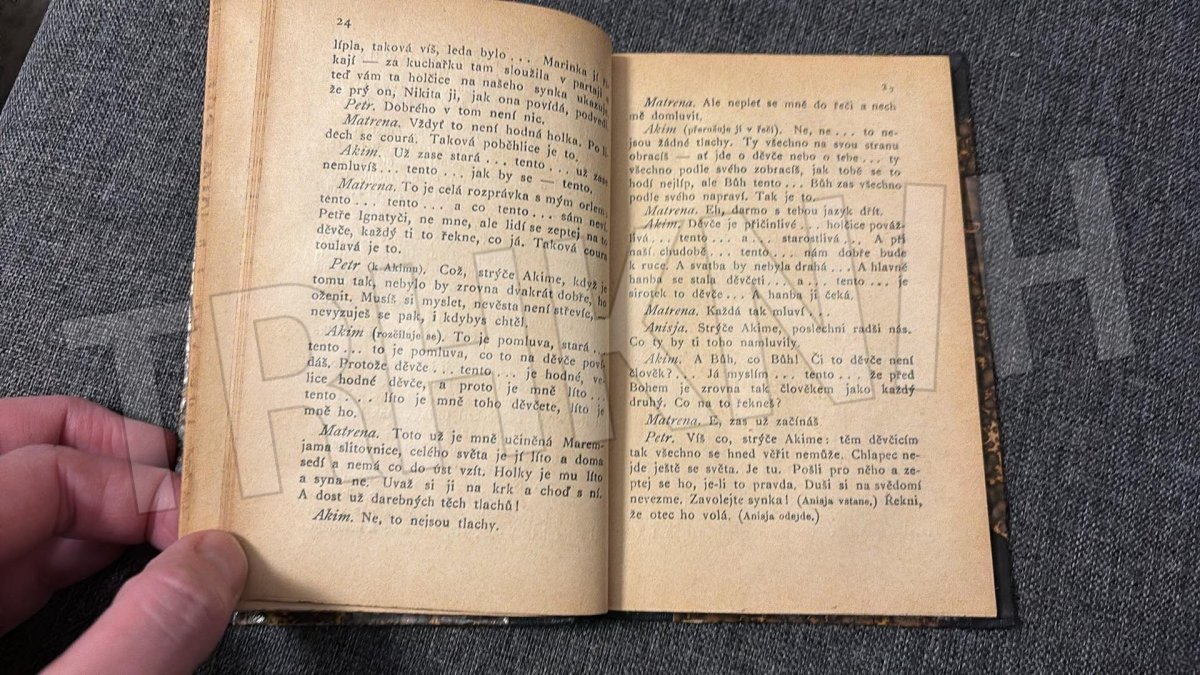 24
lípla, taková víš, leda bylo . . . Marinka jí ří-
kají — za kuchařku tam sloužila v partaji a
teď vám ta holčice na našeho synka ukazuje,
že prý on, Nikita ji, jak ona povídá, podvedl.
Petr. Dobrého v tom není nic.
Matrena. Vždyť to není hodná holka. Po li-
dech se courá. Taková poběhlice je to.
Akim. Už zase stará . . . tento . . . už zase
nemluvíš . . . tento . . . jak by se — tento.
Matrena. To je celá rozprávka s mým orlem:
tento . . . tento . . . a co tento . . . sám neví.
Petře Ignatyči, ne mne, ale lidí se zeptej na to
děvče, každý ti to řekne, co já. Taková coura
toulavá je to.
Petr (k Akimu). Což, strýče Akime, když je
tomu tak, nebylo by zrovna dvakrát dobře, ho
oženit. Musíš si myslet, nevěsta není střevíc, —
nevyzuješ se pak, i kdybys chtěl.
Akim (rozčiluje se). To je pomluva, stará . . .
tento . . . to je pomluva, co to na děvče poví-
dáš. Protože děvče . . . tento . . . je hodné, ve-
lice hodné děvče, a proto je mně líto . . .
tento . . . líto je mně toho děvčete, líto je
mně ho.
Matrena. Toto už je mně učiněná Marem-
jama slitovnice, celého světa je jí líto a doma
sedí a nemá co do úst vzít. Holky je mu líto
a syna ne. Uvaž si ji na krk a choď s ní.
A dost už darebných těch tlachů!
Akim. Ne, to nejsou tlachy.
25
Matrena. Ale nepleť se mně do řeči a nech
mě domluvit.
Akim (přerušuje jí v řeči). Ne, ne . . . to ne-
jsou žádné tlachy. Ty všechno na svou stranu
obracíš — ať jde o děvče nebo o tebe . . . ty
všechno podle svého zobracíš, jak tobě se to
hodí nejlíp, ale Bůh tento . . . Bůh zas všechno
podle svého napraví. Tak je to.
Matrena. Eh, darmo s tebou jazyk dřít.
Akim. Děvče je přičinlivé . . . holčice pováž-
livá . . . tento . . . a . . . starostlivá . . . A při
naší chudobě . . . tento . . . nám dobře bude
k ruce. A svatba by nebyla drahá . . . A hlavně
hanba se stala děvčeti . . . a . . . tento . . . je
sirotek to děvče . . . A hanba ji čeká.
Matrena. Každá tak mluví . . .
Anisja. Strýče Akime, poslechni radši nás.
Co ty by ti toho namluvily.
Akim. A Bůh, co Bůh! Či to děvče není
člověk? . . . Já myslím . . . tento . . . že před
Bohem je zrovna tak člověkem jako každý
druhý. Co na to řekneš?
Matrena. E, zas už začínáš.
Petr. Víš co, strýče Akime: těm děvčicím
tak všechno se hned věřit nemůže. Chlapec ne-
jde ještě se světa. Je tu. Pošli pro něho a ze-
ptej se ho, je-li to pravda. Duši si na svědomí
nevezme. Zavolejte synka! (Anisja vstane.) Řekni,
že otec ho volá. (Anisja odejde.)
TRHKNIH